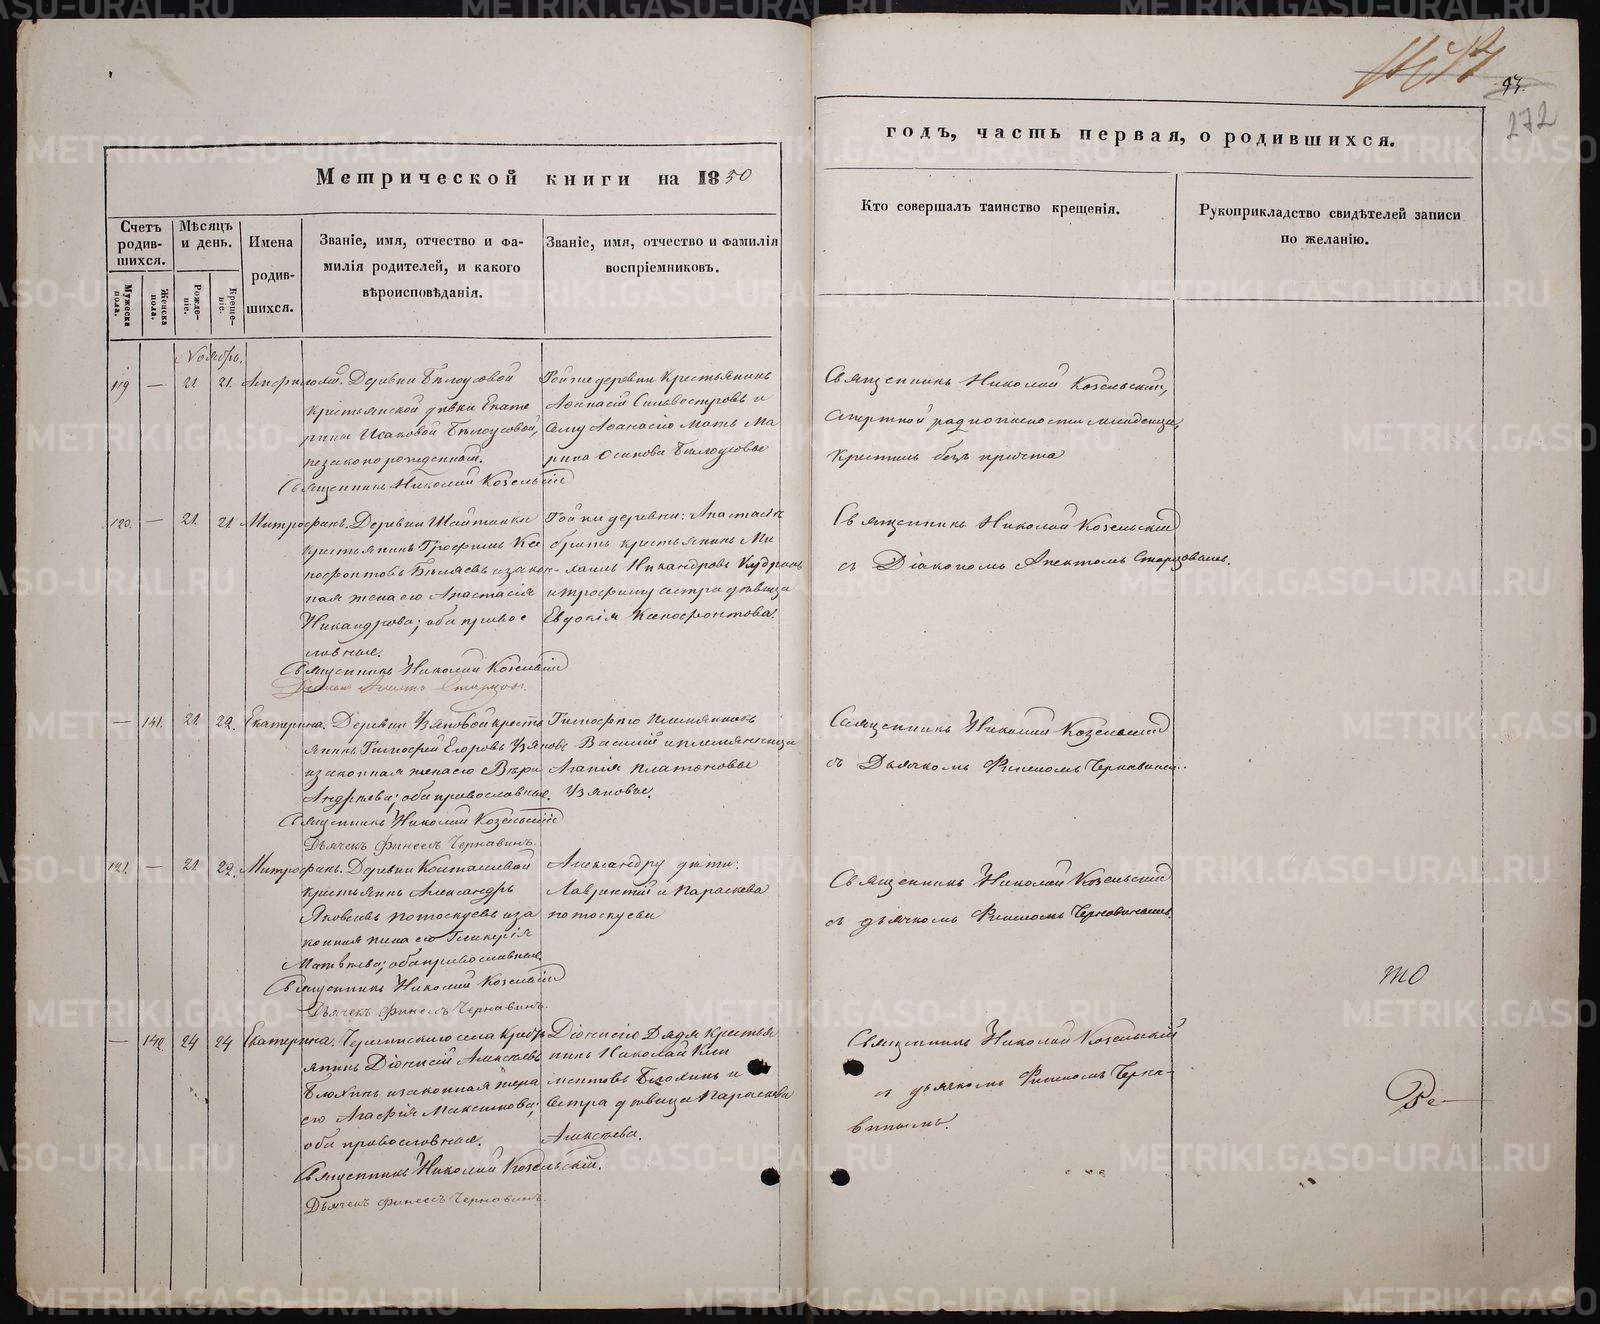 Метрической книги на 1850
годъ, часть первая, о родившихся.
272
Счетъ родив-шихся.
Мужеска пола.
Женска пола.
Мѣсяцъ и день.
Рожде-ніе.
Креще-ніе.
Имена родив-шихся.
Званіе, имя, отчество и фа-
милія родителей, и какого
вѣроисповѣданія.
Званіе, имя, отчество и фамилія
воспріемниковъ.
Кто совершалъ таинство крещенія.
Рукоприкладство свидѣтелей записи
по желанію.
Ноябрь.
119 — 21 21. Деревни Бѣлоусовой
крестьянской дѣвки Екате
рины Исаковой Бѣлоусовой,
незаконорожденный.
Священникъ Николай Козельскій
Той же деревни Крестьянинъ
Афанасій Сильвестровъ и
Ему Афанасію Мать Ма
рина Осипова Бѣлоусовы
Священникъ Николай Козельскій,
смертной ради опасности младенца,
крестилъ безъ причта
120. — 21. 21. Митрофанъ. Деревни Шайтанки
крестьянинъ Трофимъ Ксе
нофонтовъ Бѣляевъ и закон-
ная жена его Анастасія
Никандрова; оба правос
лавные.
Священникъ Николай Козельскій
Той же деревни: Анастасіи
братъ крестьянинъ Ми
хаилъ Никандровъ Кудринъ
и Трофиму сестра дѣвица
Евдокія Ксенофонтова.
Священникъ Николай Козельскій
съ Діакономъ
— 141. 21. 22. Екатерина. Деревни Узяновой кресть
янинъ Тимофей Егоровъ Узяновъ
и законная жена его Вѣра
Андреева; оба православные.
Священникъ Николай Козельскій
Дьячекъ Финеесъ Чернавинъ.
Тимофею племянникъ
Василій и племянница
Агапія Платоновы
Узяновы.
Священникъ Николай Козельскій
съ Дьячкомъ Финеесомъ Чернавинымъ.
121. — 21. 22. Митрофанъ. Деревни Косташевой
крестьянинъ Александръ
Яковлевъ Потоскуевъ и за
конная жена его Гликерія
Матвѣева; оба православные.
Священникъ Николай Козельскій
Дьячекъ Финеесъ Чернавинъ.
Александру дѣти:
Лаврентій и Параскева
Потоскуевы
Священникъ Николай Козельскій
съ дьячкомъ Финеесомъ Чернавинымъ.
то
— 142. 24 24 Екатерина. Черемисскаго села Кресть
янинъ Діонисій Алексѣевъ
и законная жена
его Агафія Максимова;
оба православные.
Священникъ Николай Козельскій.
Дьячекъ Финеесъ Чернавинъ.
Діонисію Дядя Крестья
нинъ Николай Кли
ментовъ и
сестра дѣвица Параскева
Алексѣева.
Священникъ Николай Козельскій
съ дьячкомъ Финеесомъ Черна-
винымъ.
Ре—
METRIKI.GASO-URAL.RU